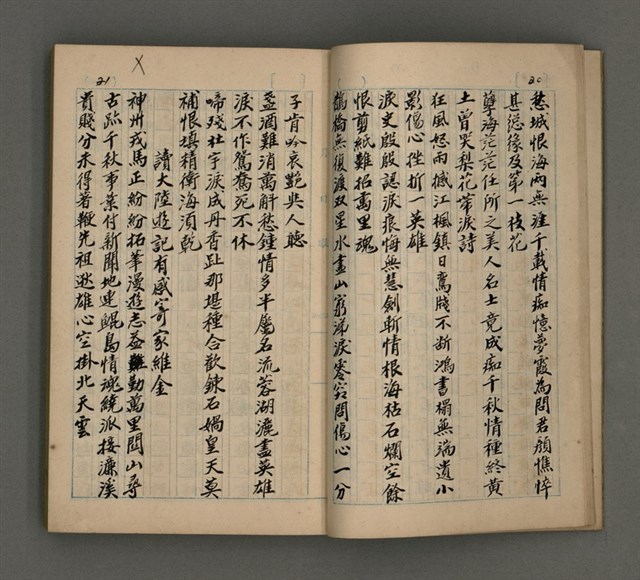 20
愁城恨海兩無涯千載情痴憶夢霞為問君顏憔悴
甚愆緣及第一枝花
孽海茫茫任所之美人名士竟成痴千秋情種終黃
土曾哭梨花帶淚詩
狂風怒雨撼江楓鎮日鸞牋不斷鴻書榻無端遺小
影傷心挫折一英雄
淚史殷殷認淚痕悔無慧劍斬情根海枯石爛空餘
恨剪紙難招萬里魂
鵲橋無復渡双星水盡山窮涕淚零欲問傷心一分
21
子肯吟哀艷與人聽
盞酒難消萬斛愁鍾情多半屬名流蓉湖灑盡英雄
淚不作鴛鴦死不休
啼殘杜宇淚成丹香趾那堪種合歡鍊石媧皇天莫
補恨填精衛海須乾
讀大陸遊記有感寄家維金
神州戎馬正紛紛拓筆漫遊志益勤萬里関山尋
古跡千秋事業付新聞地連鯤島情魂繞派接濂溪
貴賤分未得著鞭先祖逖雄心空掛北天雲